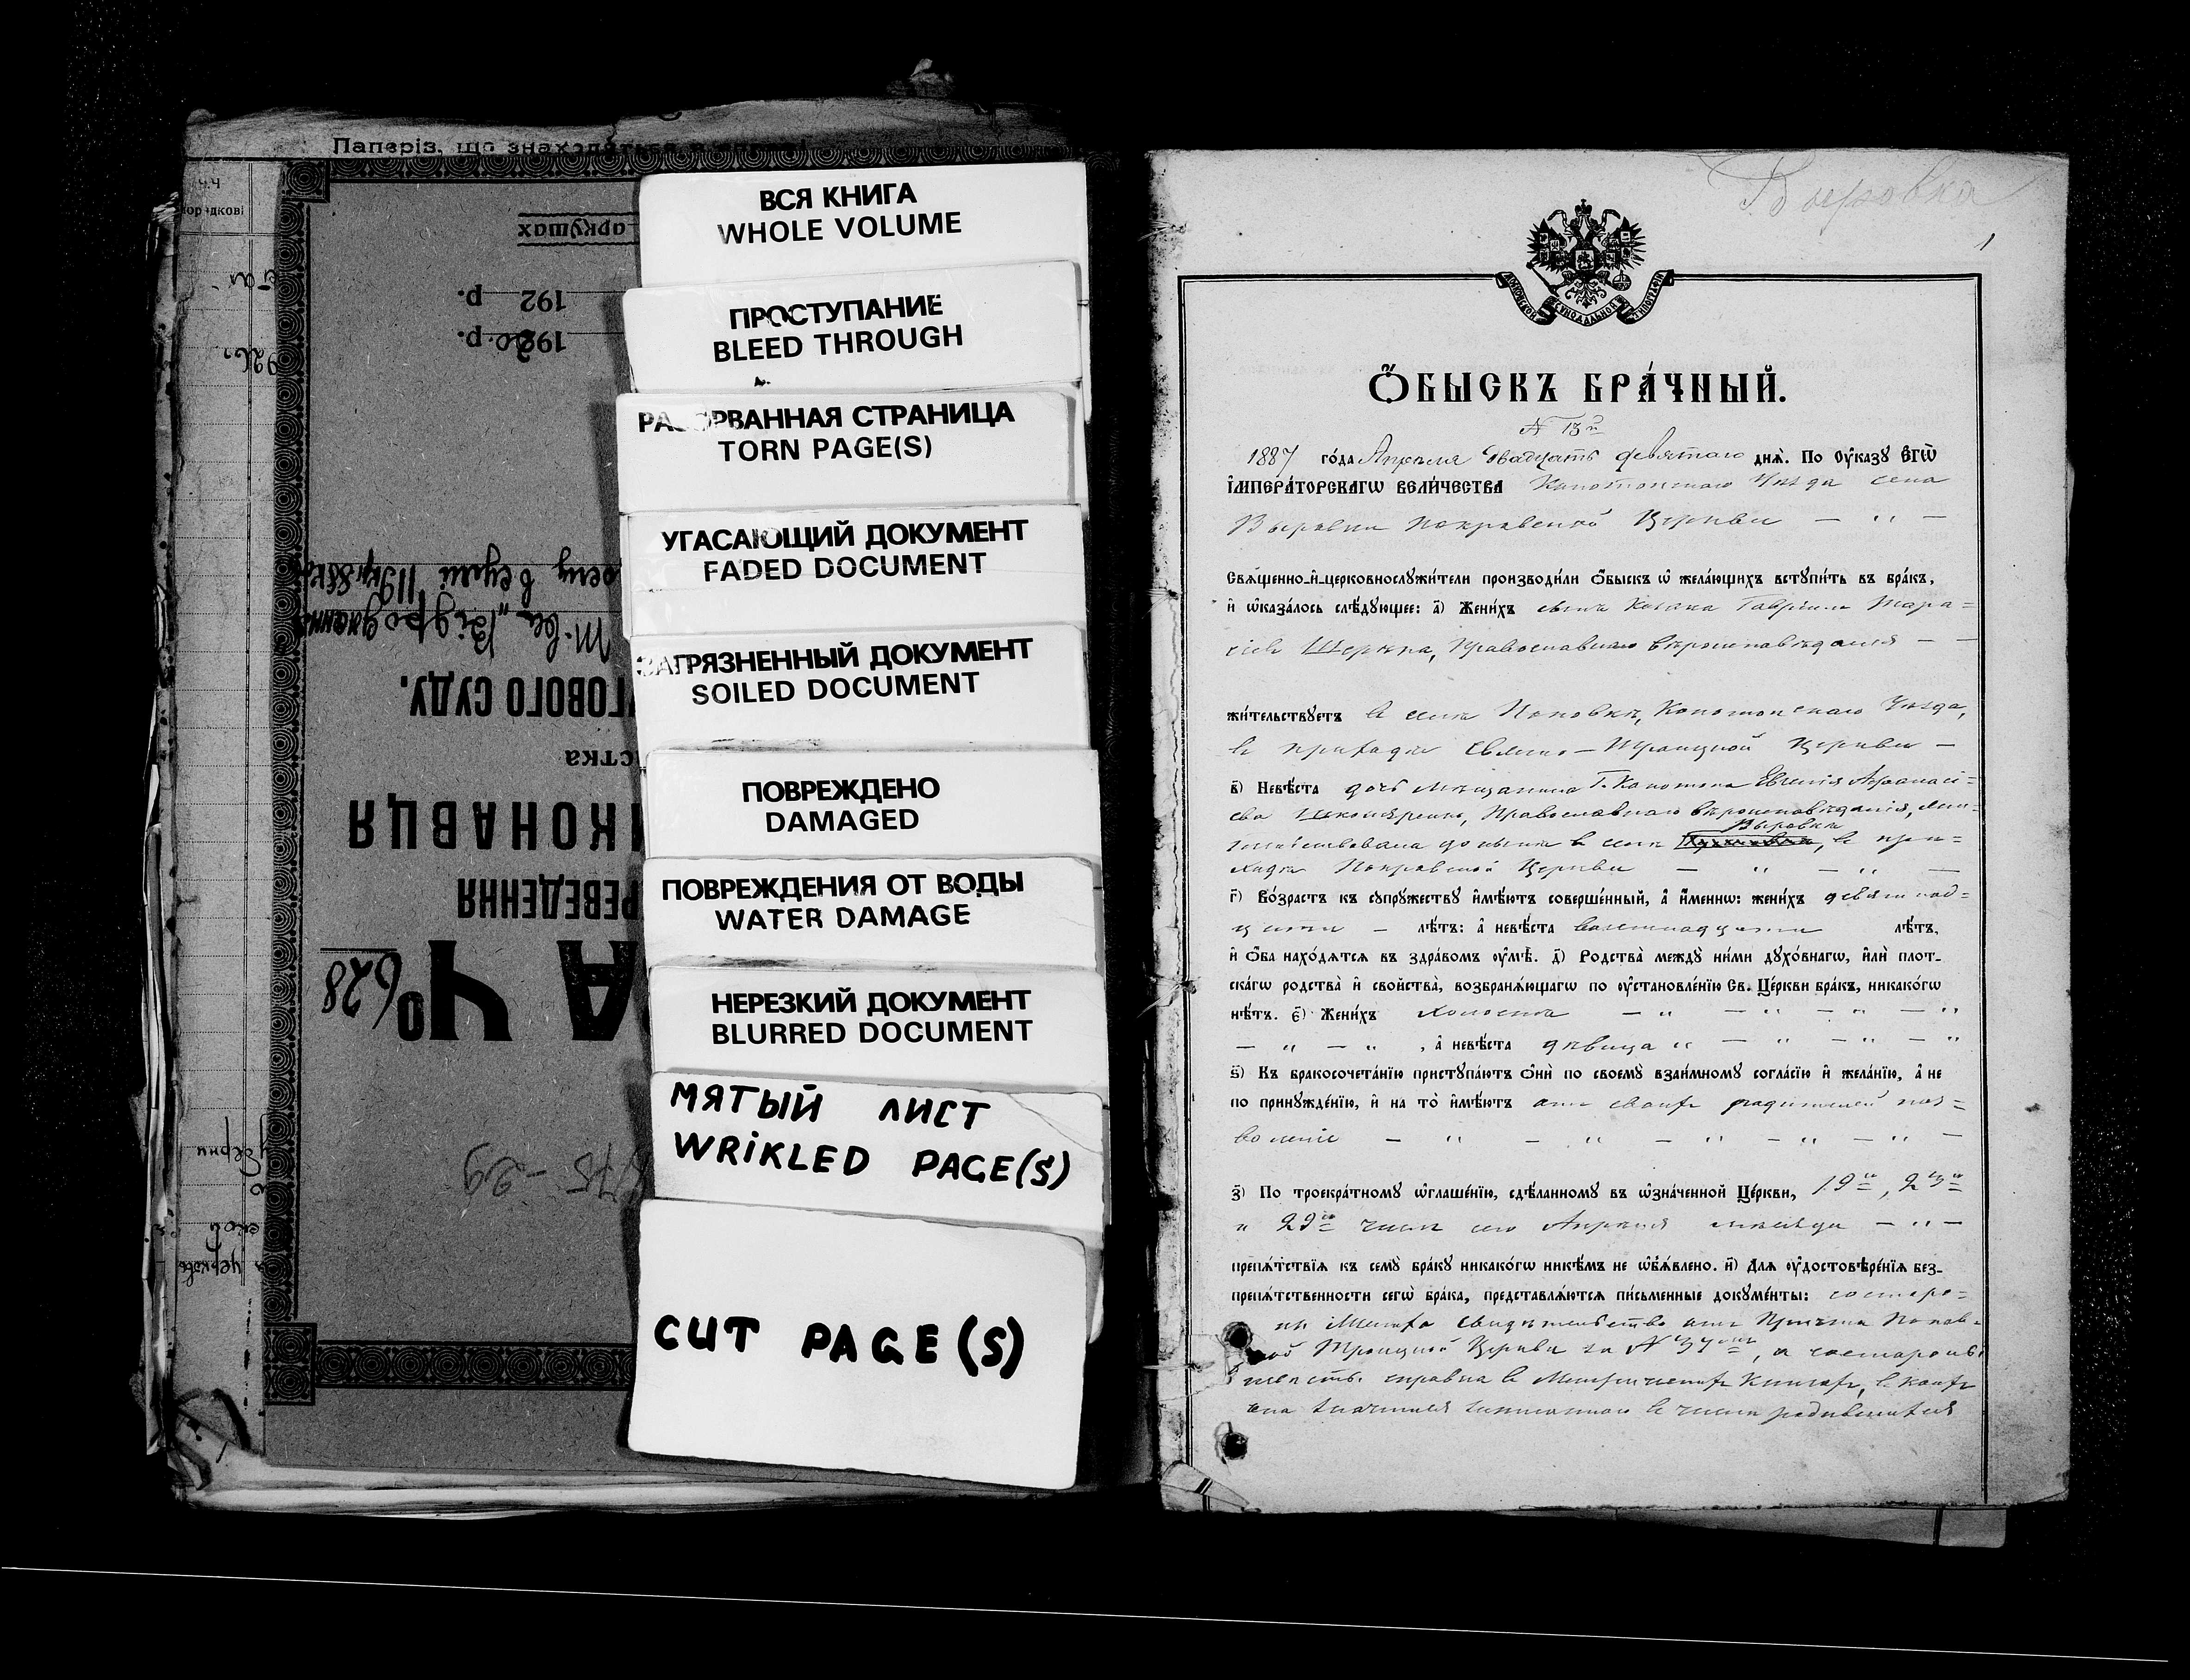 Паперіз, що знаходяться в
аркушах
192 р.
1920 р.
ГОВОГО СУДУ.
КОНАВЦЯ
РЕВЕДЕННЯ
А Ч
№ 628
ВСЯ КНИГА
WHOLE VOLUME
ПРОСТУПАНИЕ
BLEED THROUGH
РАЗОРВАННАЯ СТРАНИЦА
TORN PAGE(S)
УГАСАЮЩИЙ ДОКУМЕНТ
FADED DOCUMENT
ЗАГРЯЗНЕННЫЙ ДОКУМЕНТ
SOILED DOCUMENT
ПОВРЕЖДЕНО
DAMAGED
ПОВРЕЖДЕНИЯ ОТ ВОДЫ
WATER DAMAGE
НЕРЕЗКИЙ ДОКУМЕНТ
BLURRED DOCUMENT
МЯТЫЙ ЛИСТ
WRiKLED PAGE(S)
CUT PAGE(S)
Выровка
1
МОСКОВСКОЙ СѴНОДАЛЬНОЙ ТИПОГРАФІИ
Ѻ҆БЫСКЪ БРА́ЧНЫЙ.
N 13й
1887 го́да Апрѣля двадцать девятаго днѧ̀. По ᲂу҆ка́зꙋ Є҆гѡ̀
І҆МПЕРА́ТОРСКАГѠ ВЕЛИ́ЧЕСТВА Конотопскаго Уѣзда села
Выровки Покровской Церкви — " —
Свѧще́нно-и҆-церковнослꙋжи́тели производи́ли ѻ҆́быскъ ѡ҆ жела́ющихъ встꙋпи́ть въ бра́къ,
и҆ ѡ҆каза́лось слѣ́дꙋющее: а҃) Жени́хъ сынъ козака Гавріилъ Тара=
сіевъ Шерека, Православнаго вѣроисповѣданія — —
жи́тельствꙋетъ въ селѣ Поповкѣ, Конотопскаго Уѣзда,
въ приходѣ Свято-Троицкой Церкви —
в҃) Невѣ́ста дочь мѣщанина Г. Конотопа Евгенія Аѳанасі=
ева Православнаго вѣроисповѣданія, жи=
тельствовала до нынѣ въ селѣ Выровкѣ, въ при=
ходѣ Покровской Церкви — " — " —
г҃) Во́зрастъ къ сꙋпрꙋ́жествꙋ и҆мѣ́ютъ соверше́нный, а҆ и҆́меннѡ: жени́хъ девятнад=
цати — лѣ́тъ: а҆ невѣ́ста восемнадцати лѣ́тъ,
и҆ ѻ҆́ба нахо́дѧтсѧ въ здра́вомъ ᲂу҆мѣ̀. д҃) Родства̀ междꙋ̀ ни́ми дꙋхо́внагѡ, и҆лѝ плот-
ска́гѡ родства̀ и҆ сво́йства, возбранѧ́ющагѡ по ᲂу҆становле́нїю Св. Це́ркви бра́къ, никако́гѡ
нѣ́тъ. є҃) Жени́хъ холостъ — " — " — " — "
— " — " , а҆ невѣ́ста дѣвица " — " — " — "
ѕ҃) Къ бракосочета́нїю пристꙋпа́ютъ ѻ҆нѝ по своемꙋ̀ взаи́мномꙋ согла́сїю и҆ жела́нїю, а҆ не
по принꙋжде́нїю, и҆ на то̀ и҆мѣ́ютъ отъ своихъ родителей поз=
воленіе — " — " — " — " — " —
з҃) По троекра́тномꙋ ѡ҆глаше́нїю, сдѣ́ланномꙋ въ ѡ҆зна́ченной Це́ркви, 19го, 23го
и 29го чиселъ сего Апрѣля мѣсяца — " —
препѧ́тствїѧ къ семꙋ̀ бра́кꙋ никако́гѡ никѣ́мъ не ѡ҆б̾ѧ́влено. и҃) Длѧ ᲂу҆достовѣре́нїѧ без-
препѧ́тственности сегѡ̀ бра́ка, представлѧ́ютсѧ пи́сьменные докꙋме́нты: со сторо=
ны Жениха свидѣтельство отъ Причта Попов=
ской Троицкой Церкви за N 37мъ, а со стороны
невѣсты справка въ Метрическихъ Книгахъ, въ коихъ
она значится записанною въ числѣ родившихся